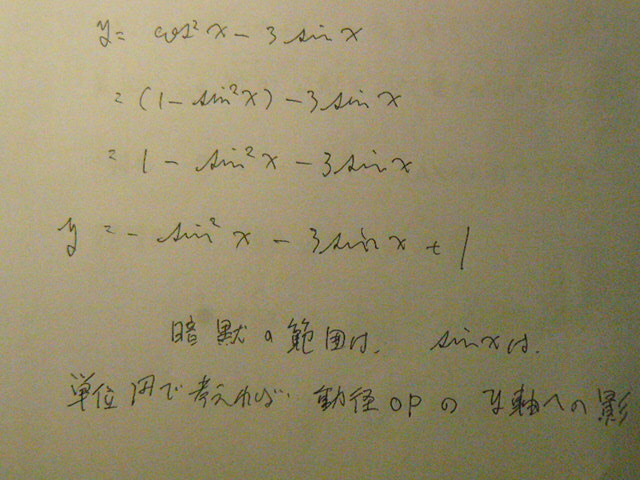 y = cos²x - 3 sin x
= (1 - sin²x) - 3 sin x
= 1 - sin²x - 3 sin x
y = - sin²x - 3 sin x + 1
暗黙の範囲は、 sin x は、
単位円で考えれば 動径OPの y軸への影